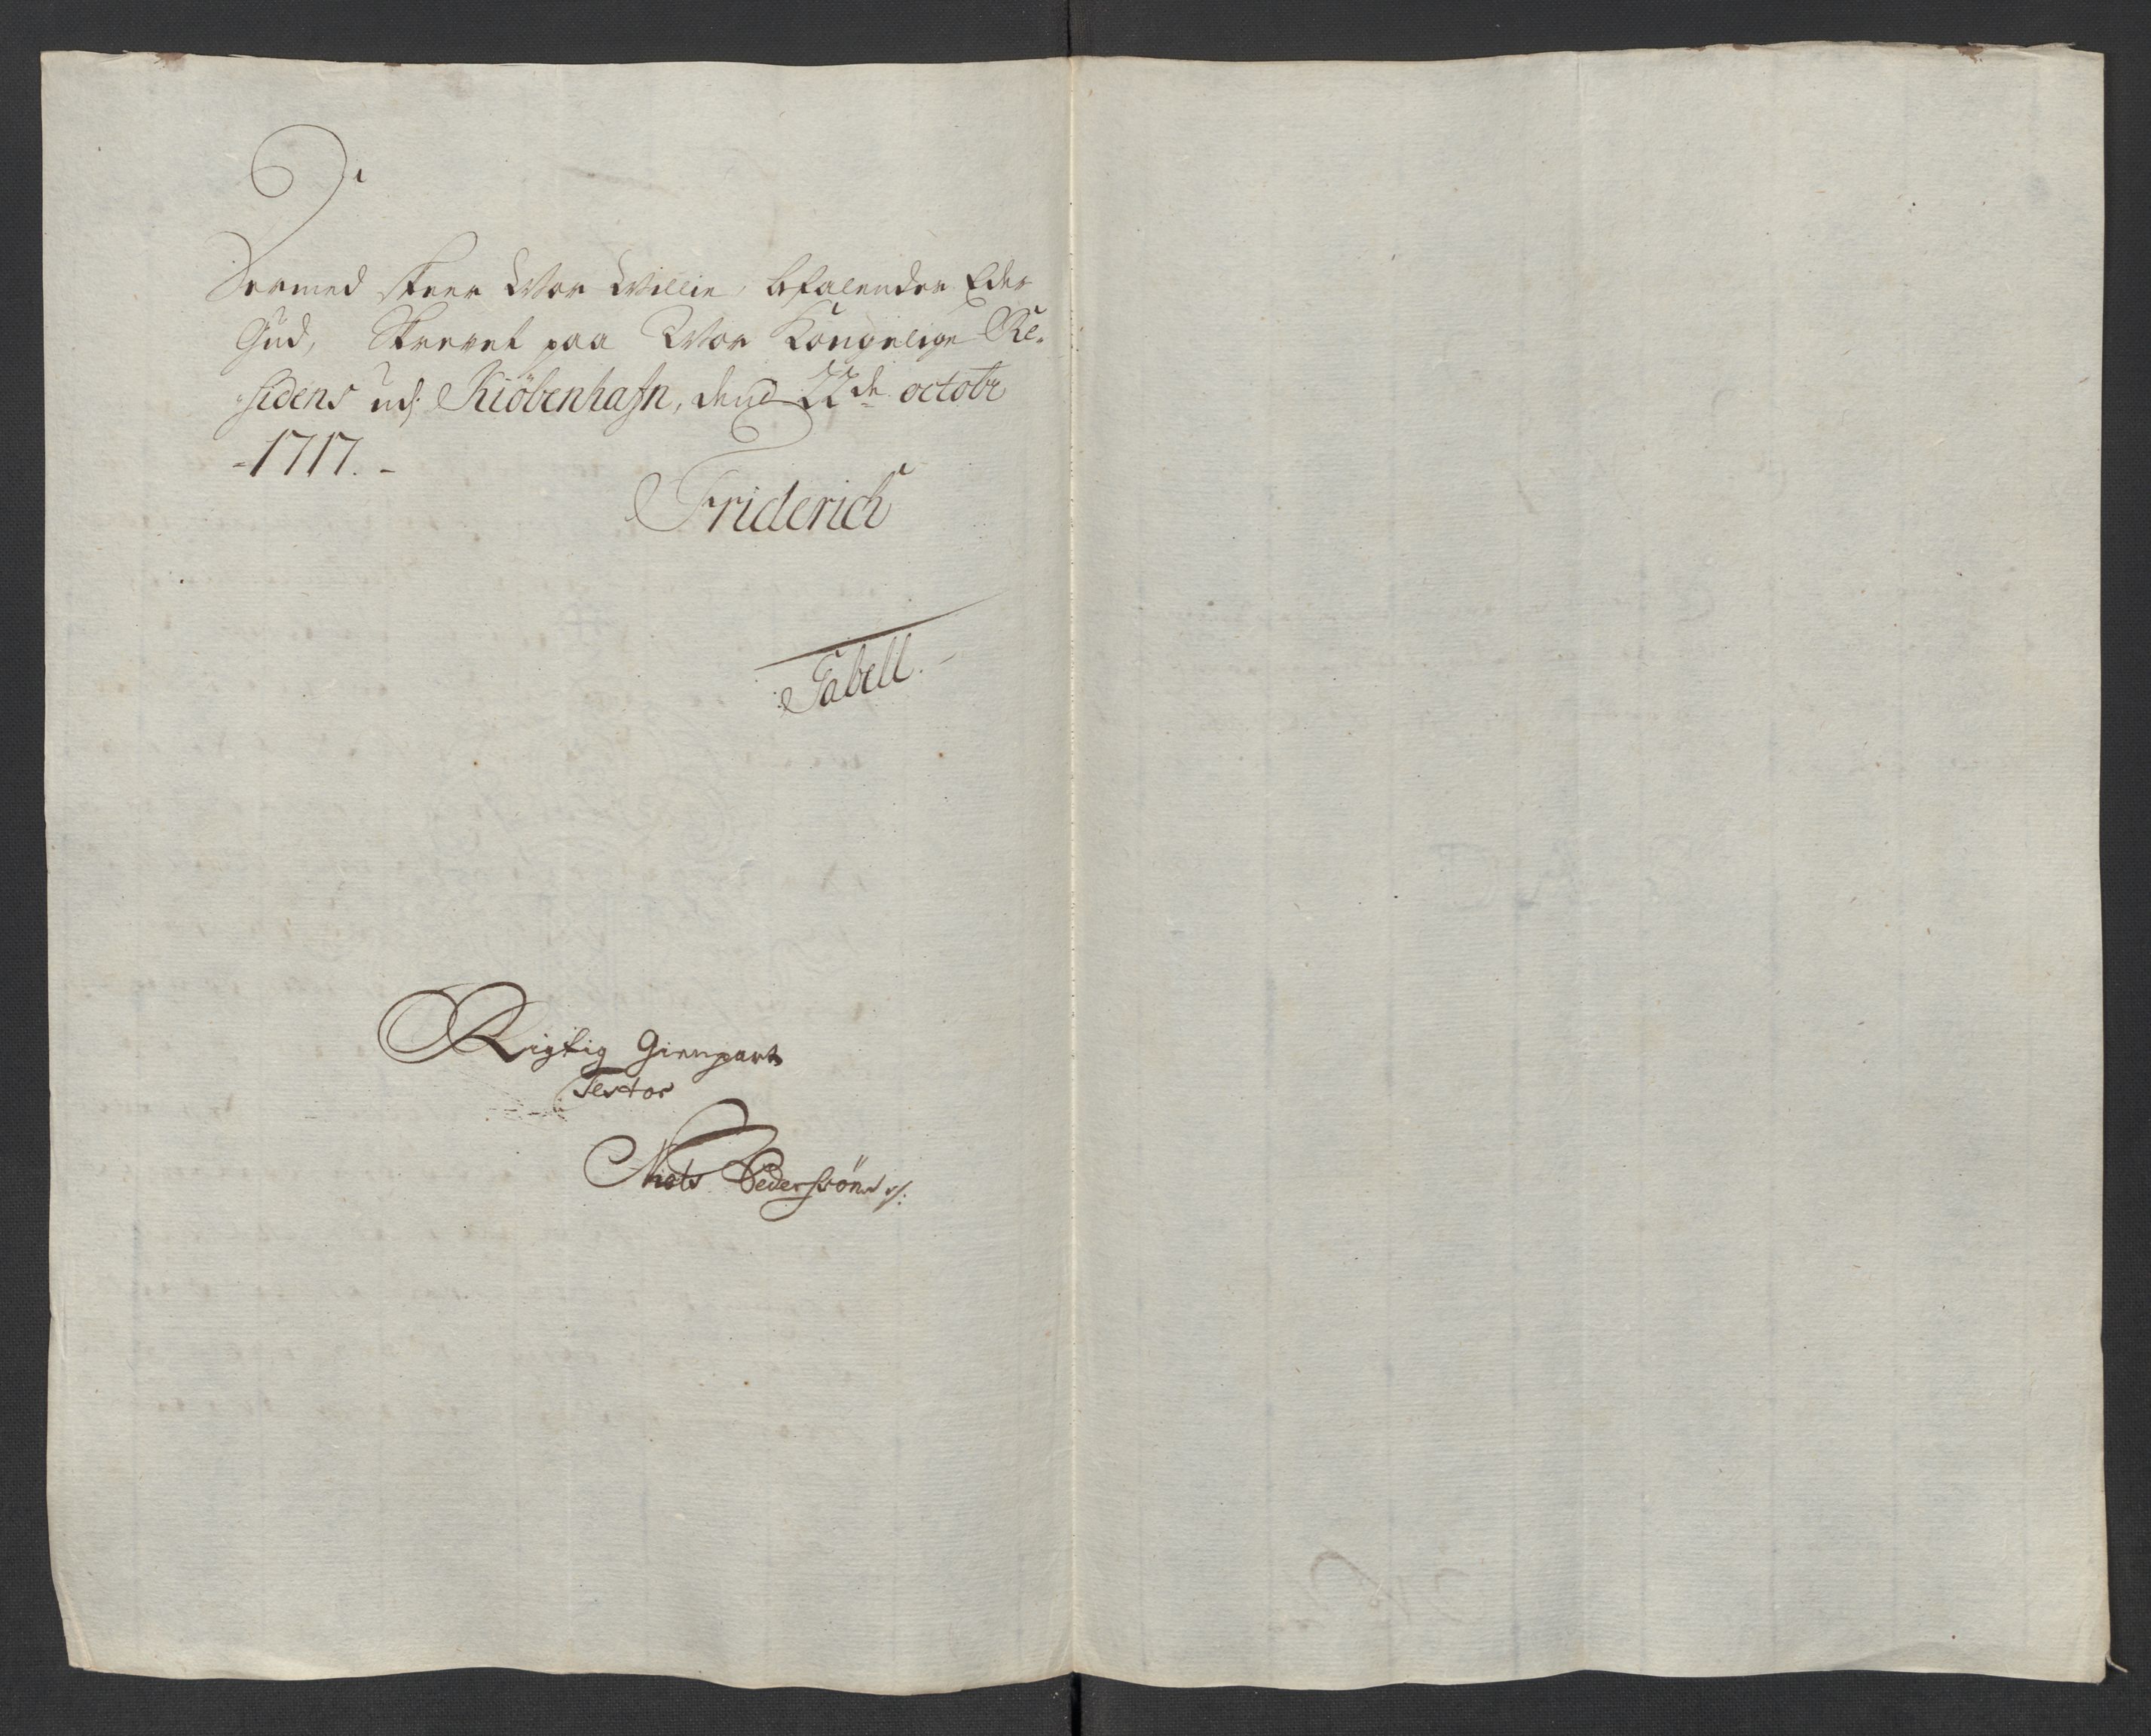 Dermed skeer Wor Willie, befalendes Eder
Gud, Skrevet paa Wor Kongelige Re-
sidens udj Kiöbenhafn, dend 22de octobr
-1717.-
Friderich
Gabell.-
Rigtig Gienpart
Testor
Niels Pederssön